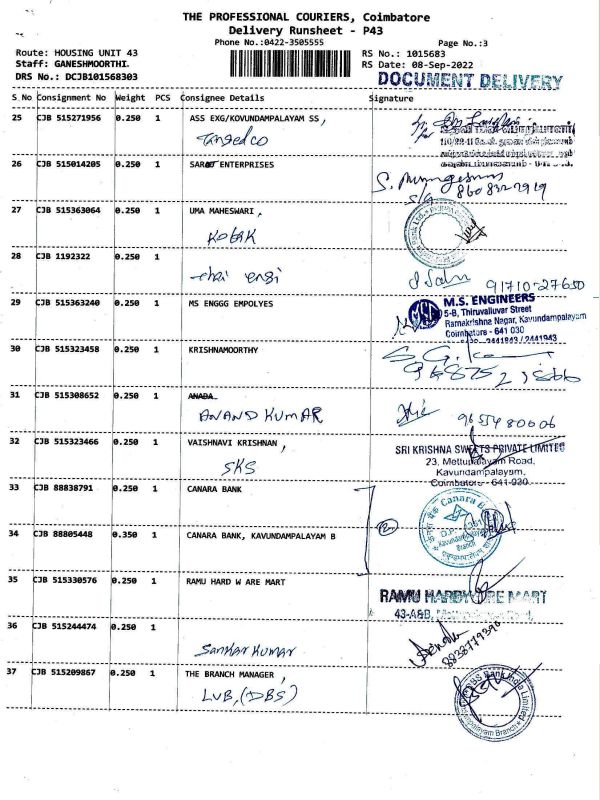 THE PROFESSIONAL COURIERS, Coimbatore
Delivery Runsheet - P43
Phone No.:0422-3505555
Page No.:3
Route: HOUSING UNIT 43
RS No.: 1015683
Staff: GANESHMOORTHI.
RS Date: 08-Sep-2022
DRS No.: DCJB101568303
DOCUMENT DELIVERY
S No Consignment No Weight PCS Consignee Details Signature
25 CJB 515271956 0.250 1 ASS EXG/KOVUNDAMPALAYAM SS,
Tangedco
26 CJB 515014205 0.250 1 SAROJ ENTERPRISES
27 CJB 515363064 0.250 1 UMA MAHESWARI,
Kotak
28 CJB 1192322 0.250 1
thai engi
91710-27650
29 CJB 515363240 0.250 1 MS ENGGG EMPOLYES
MSE
M.S. ENGINEERS
5-B, Thiruvalluvar Street
Ramakrishna Nagar, Kavundampalayam
Coimbatore - 641 030
2441943 / 2441943
30 CJB 515323458 0.250 1 KRISHNAMOORTHY
31 CJB 515308652 0.250 1 ANADA
ANAND KUMAR
32 CJB 515323466 0.250 1 VAISHNAVI KRISHNAN,
SKS
SRI KRISHNA SWEETS PRIVATE LIMITED
23, Mettupalayam Road,
Kavundampalayam,
Coimbatore - 641 030
33 CJB 88838791 0.250 1 CANARA BANK
34 CJB 88805448 0.350 1 CANARA BANK, KAVUNDAMPALAYAM B
2
Canara B
Kavundampalayam
Branch
35 CJB 515330576 0.250 1 RAMU HARD W ARE MART
RAMU HARDWARE MART
43-A&B,
36 CJB 515244474 0.250 1
Sankar Kumar
37 CJB 515209867 0.250 1 THE BRANCH MANAGER,
LVB,(DBS)
DBS Bank India Limited